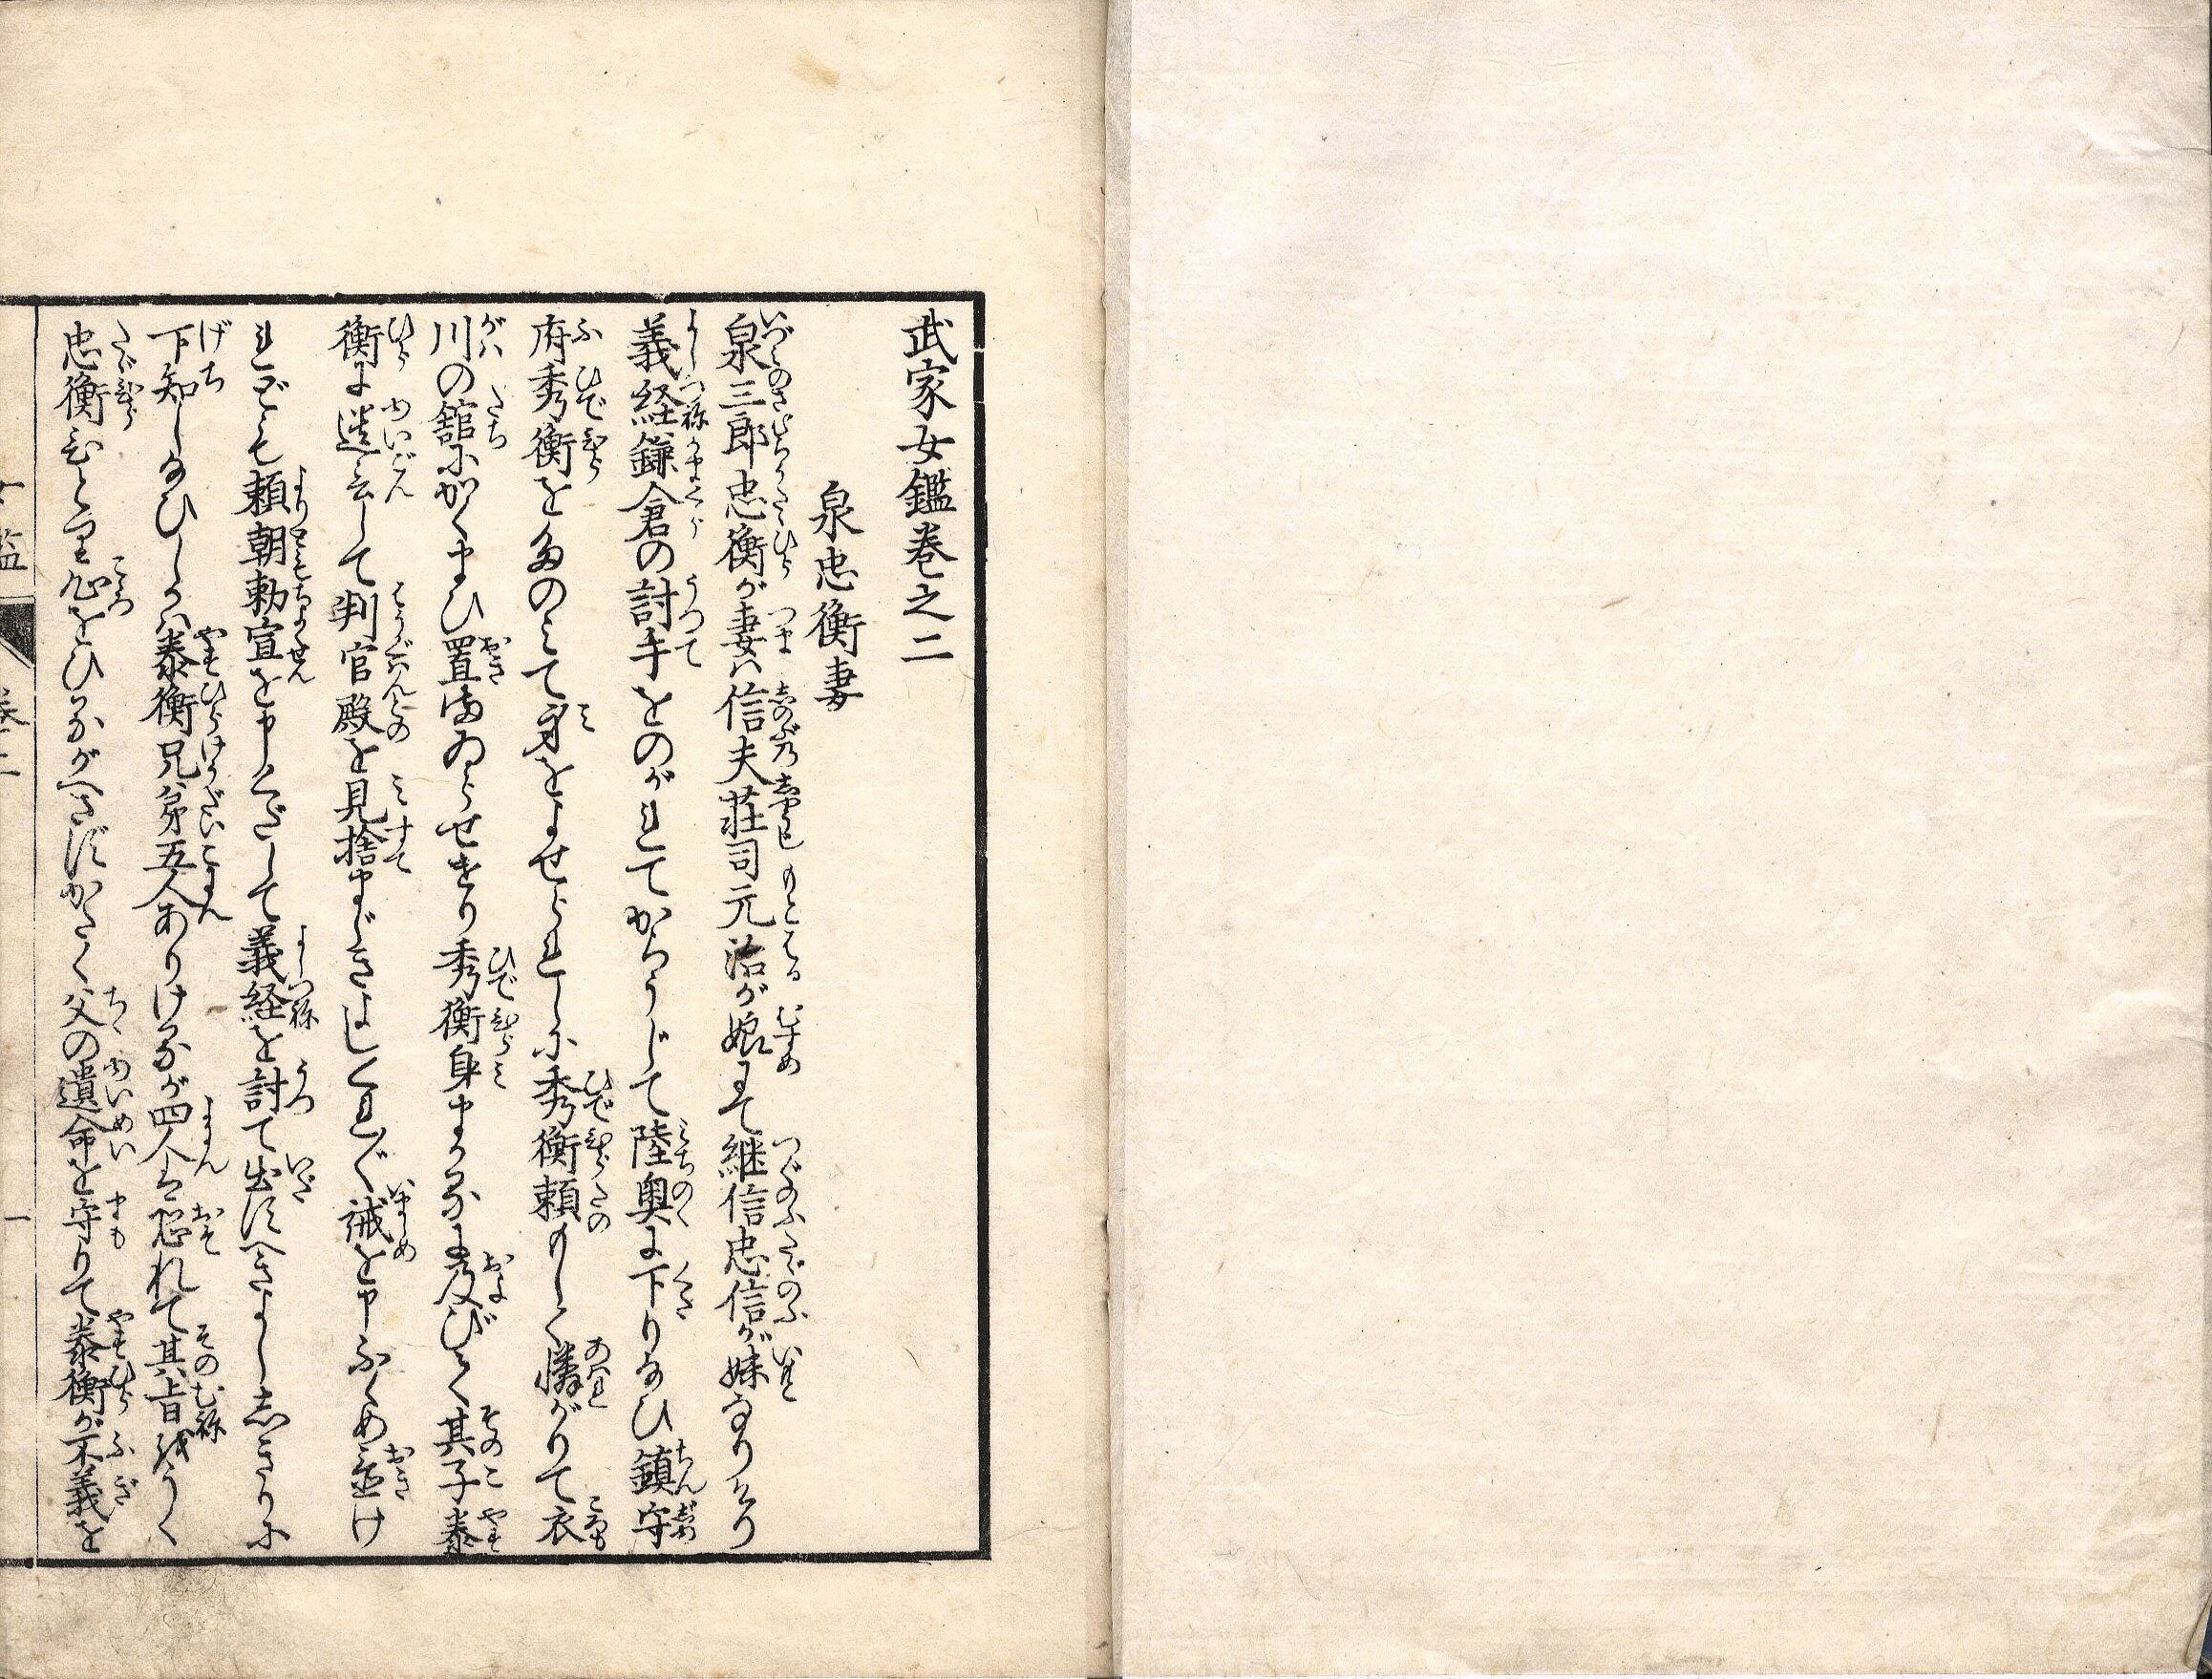 武家女鑑巻之二
泉忠衡妻
泉三郎忠衡が妻は信夫荘司元治が娘にて継信忠信が妹なりけり
義経鎌倉の討手をのがれてからうじて陸奥に下り給ひ鎮守
府秀衡をたのみて身をよせられしに秀衡頼もしく憐がりて衣
川の舘にかくまひ置まゐらせけり秀衡身まかるに及びて其子泰
衡に遺言して判官殿を見捨まじきよしくれ〴〵誡を申ふくめ置け
れども頼朝勅宣を申くだして義経を討て出すべきよししきりに
下知し給ひしかは泰衡兄弟五人ありけるが四人は恐れて其旨をうく
忠衡ひとり心をひるがへさずかたく父の遺命を守りて泰衡が不義を
女鑑
巻二
一